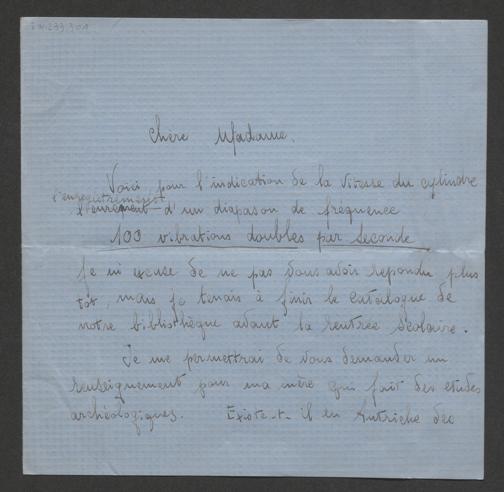 Chère Madame.
Voici, pour l'indication de la vitesse du cylindre
l'enregistrement
d'un diapason de frequence
100 vibrations doubles par seconde
Je m'excuse de ne pas vous avoir repondu plus
tôt, mais je tenais à finir le catalogue de
notre bibliothèque avant la rentree scolaire.
Je me permettrai de vous demander un
renseignement pour ma mère qui fait des etudes
archéologiques. Existe-t-il en Autriche des